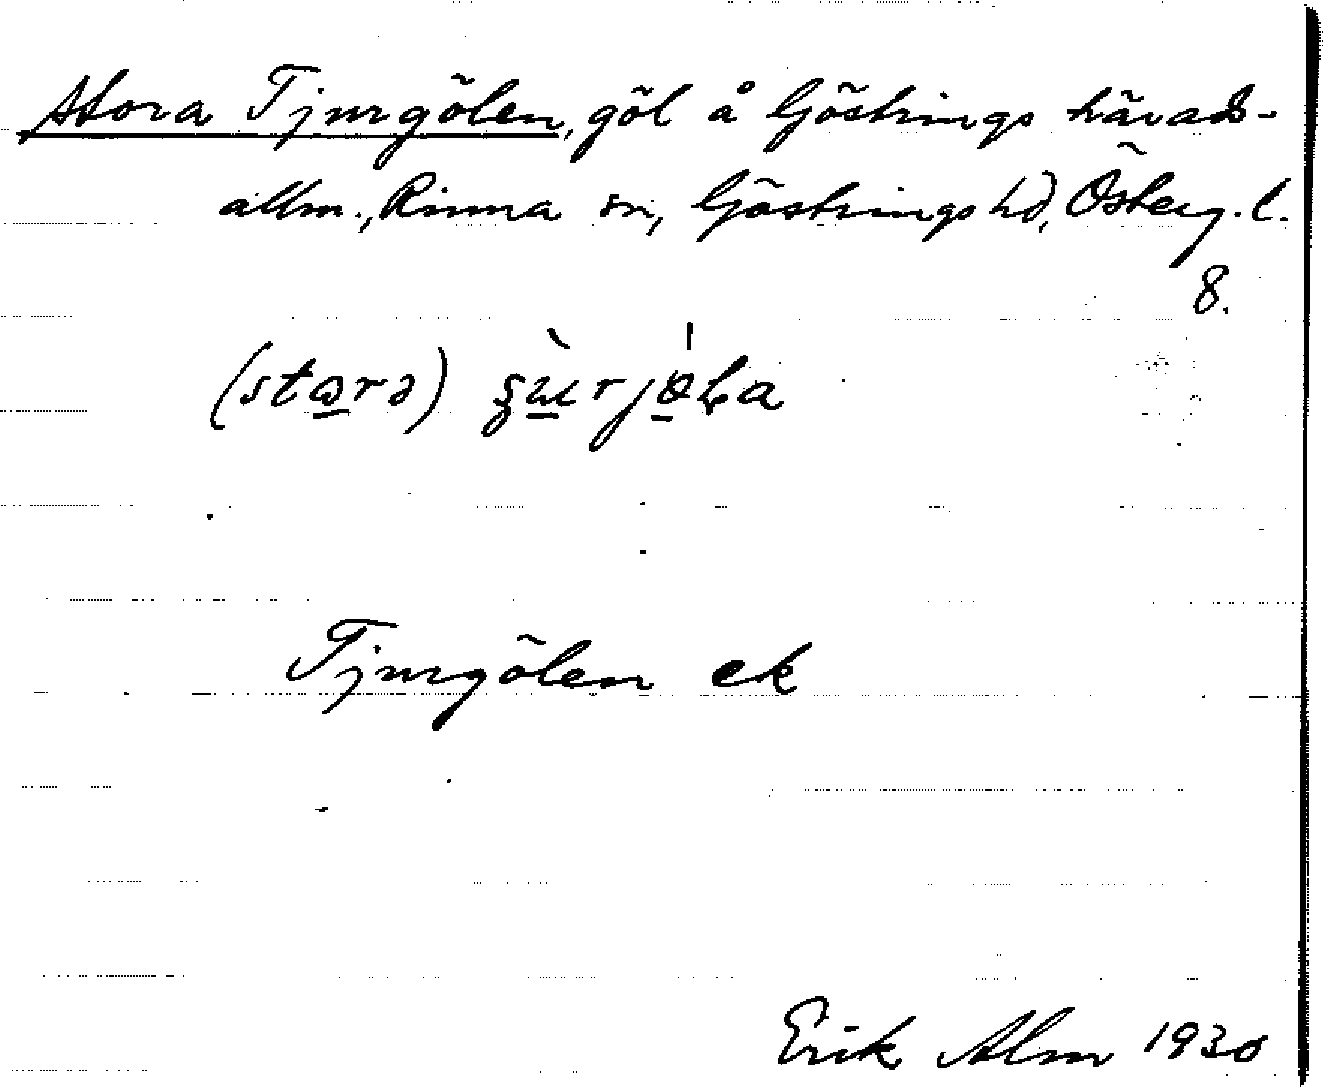 Stora Tjurgölen, göl å Göstrings härads-
allm., Rinna sn, Göstrings hd, Österg. l.
8.
(stɷrə)
Tjurgölen ek
Erik Alm 1930